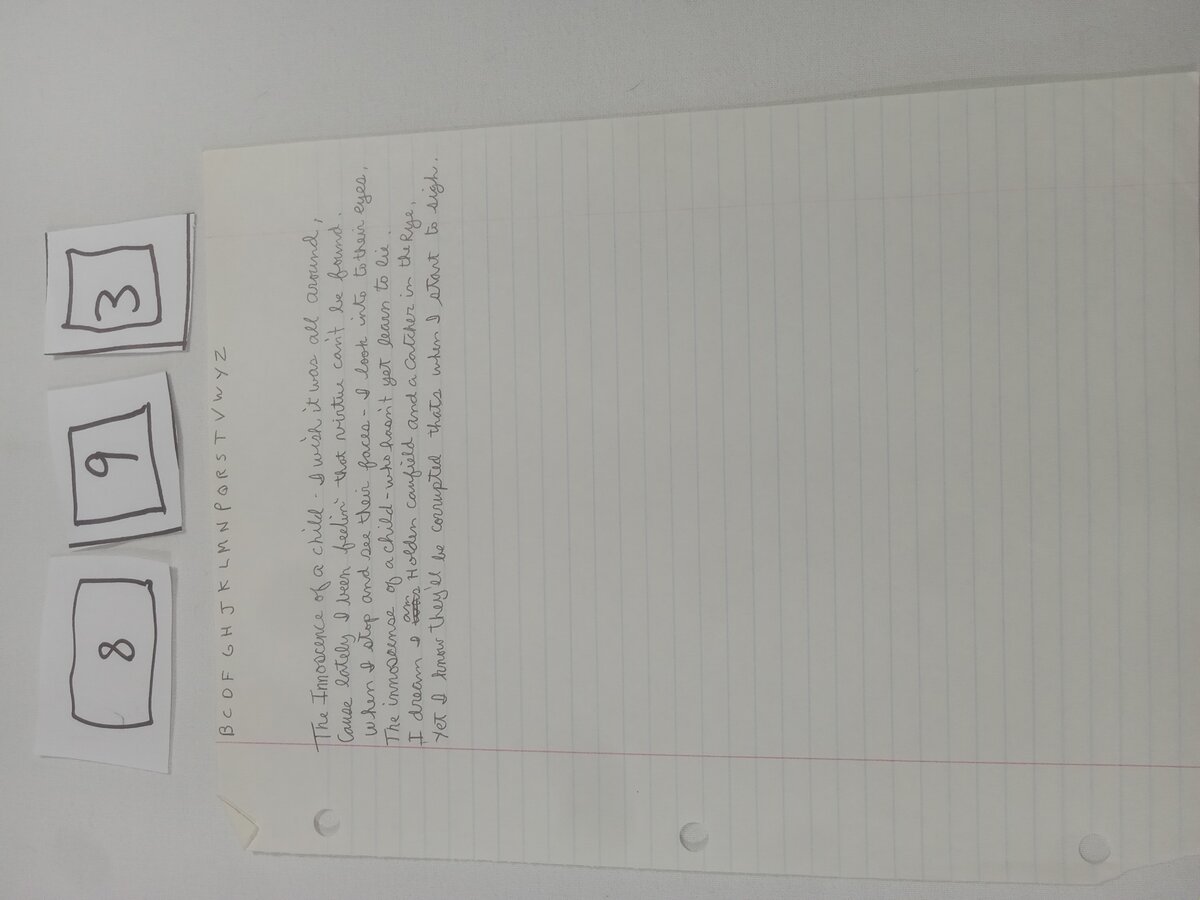 8 9 3
B C D F G H J K L M N P Q R S T V W Y Z
The Innoscence of a child - I wish it was all around,
Cause lately I been feelin' that virtue can't be found.
When I stop and see their faces - I look into to their eyes,
The innoscense of a child - who hasn't yet learn to lie.
I dream I am Holden caufield and a Catcher in the Rye,
Yet I know they'll be corrupted thats when I start to sigh.